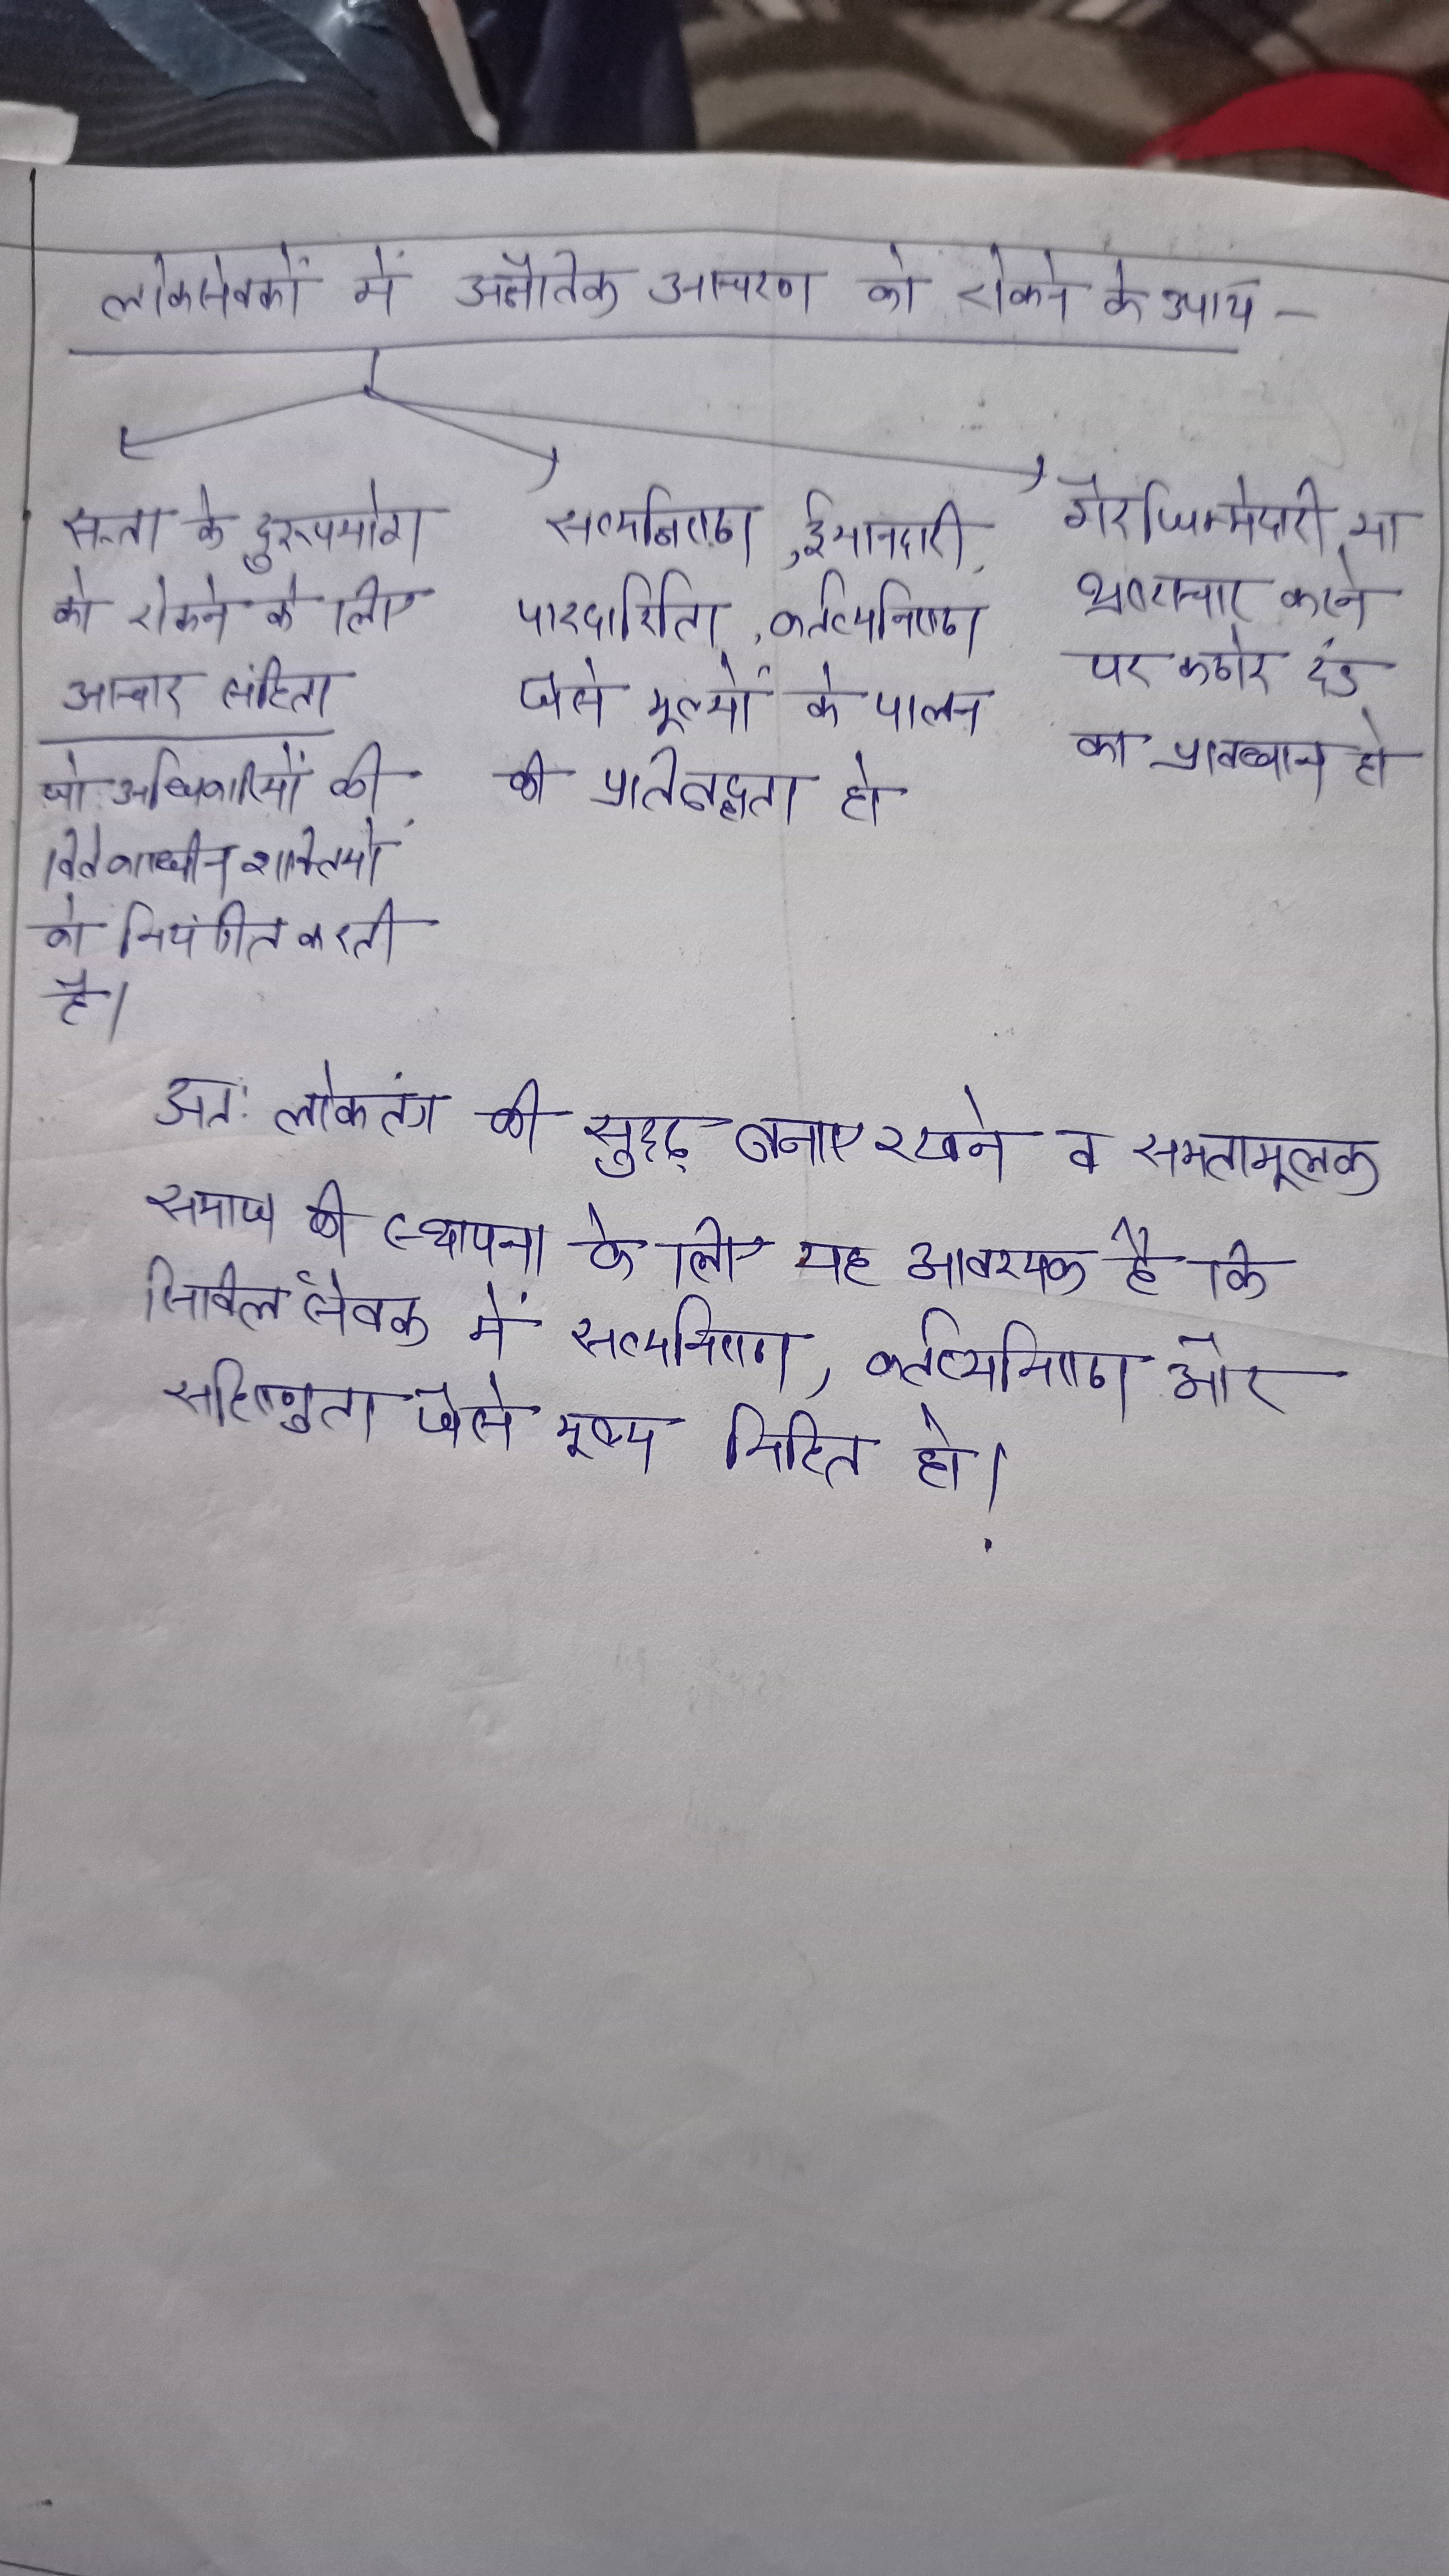 लोकसेवकों में अनैतिक आचरण को रोकने के उपाय –
सत्ता के दुरूपयोग
को रोकने के लिए
आचार संहिता
जो अधिकारियों की
विवेकाधीन शक्तियों
को नियंत्रित करती
है।
सत्यनिष्ठा, ईमानदारी,
पारदर्शिता, कर्तव्यनिष्ठा
जैसे मूल्यों के पालन
की प्रतिबद्धता हो
गैरजिम्मेदारी या
भ्रष्टाचार करने
पर कठोर दंड
का प्रावधान हो
अतः लोकतंत्र की सुदृढ़ बनाए रखने व समतामूलक
समाज की स्थापना के लिए यह आवश्यक है कि
सिविल सेवक में सत्यनिष्ठा, कर्तव्यनिष्ठा और
सहिष्णुता जैसे मूल्य निहित हो।